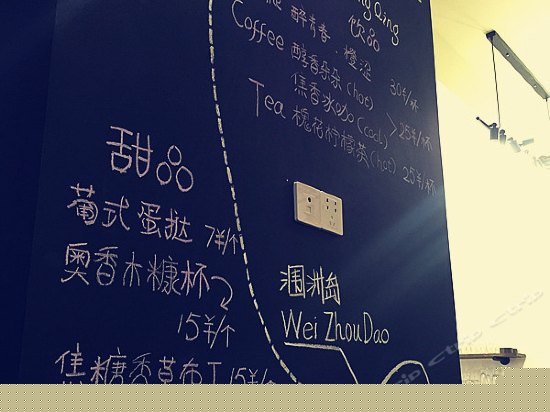 Qing
饮品
醉青春·橙涩 30¥/杯
Coffee 醇香朵朵(hot)
焦香冰咖(cool) > 25¥/杯
Tea 槐花柠檬茶(hot) 25¥/杯
甜品
葡式蛋挞 7¥/个
奥香木糠杯
15¥/个
涠洲岛
WeiZhouDao
焦糖香草布丁 15¥/个